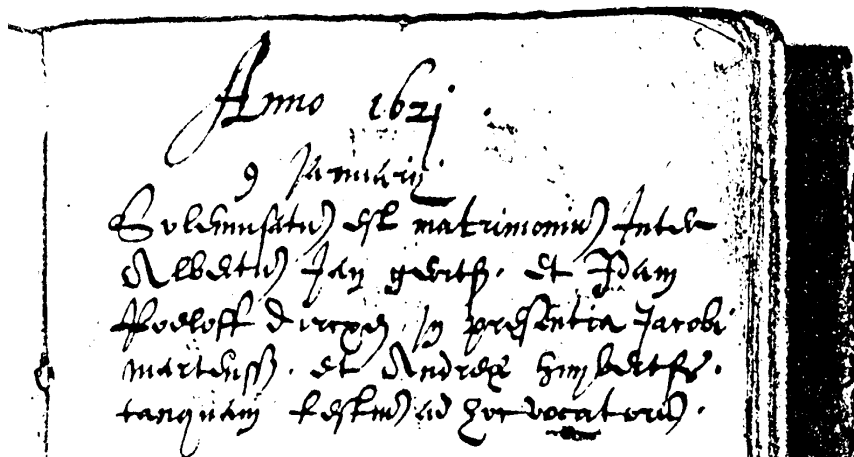 Anno 1621
9 Januarij
Solemnisatū est matrimoniū Inter
Albertū Jan geritß. et
Roeloff dircxen In presentia Jacobi
martensß. et Andreæ huÿbertse.
tanquam testiū ad hoc vocatorū.